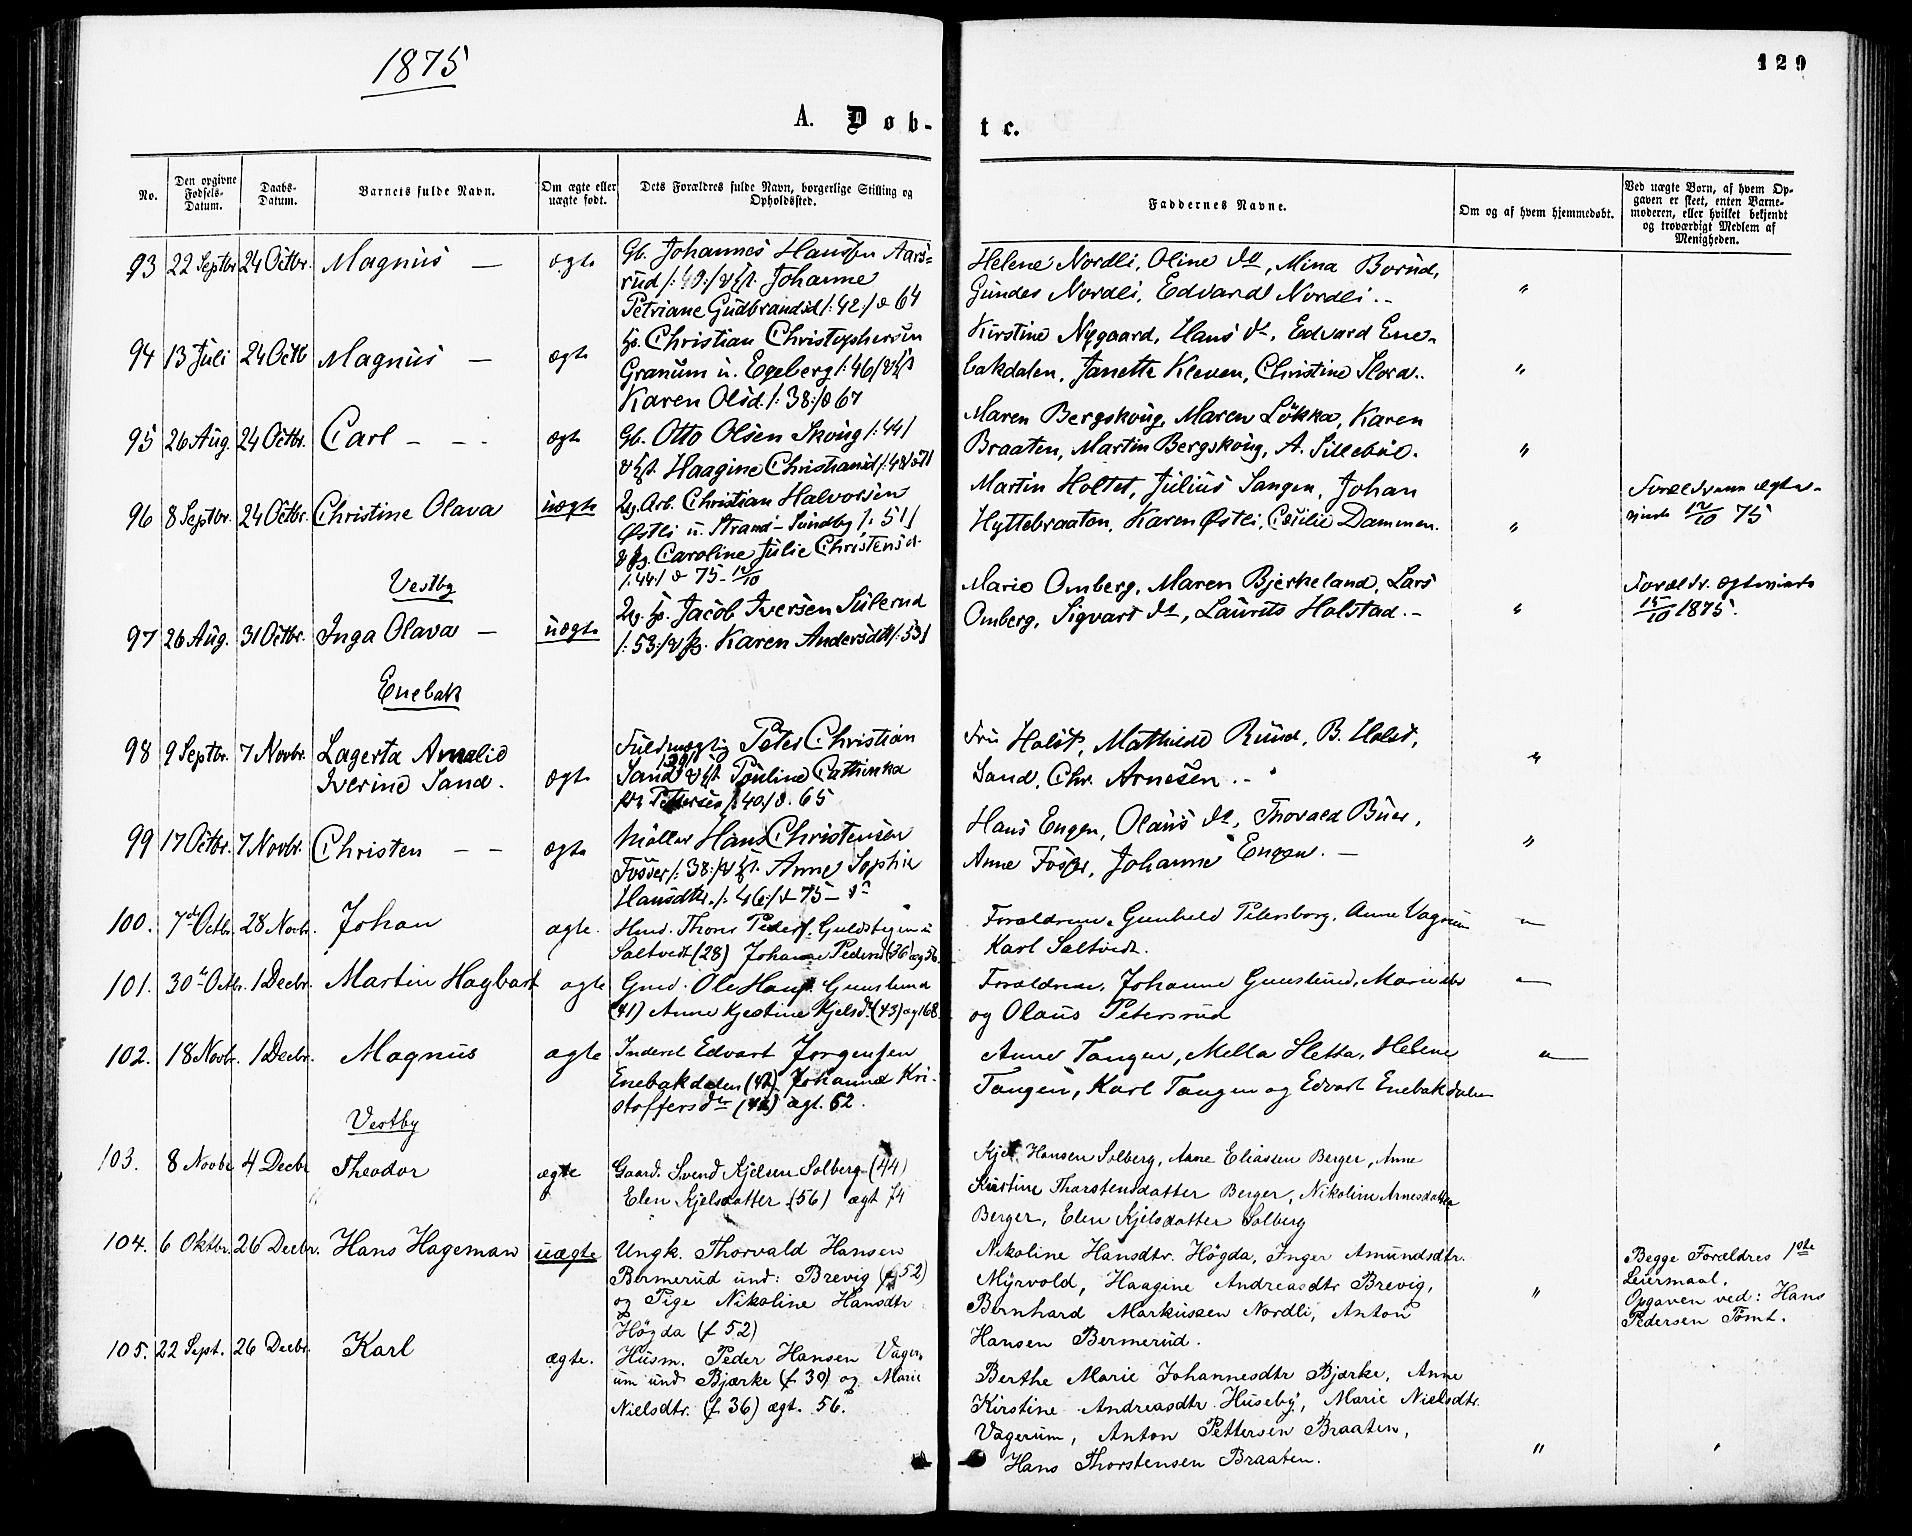 1875
129
A. Døb-
te.
No.
Den opgivne Fødsels-Datum.
Daabs-Datum.
Barnets fulde Navn.
Om ægte eller uægte født.
Dets Forældres fulde Navn, borgerlige Stilling og Opholdssted.
Faddernes Navne.
Om og af hvem hjemmedøbt.
Ved uægte Børn, af hvem Op-
gaven er skeet, enten Barne-
moderen, eller hvilket bekjendt
og troværdigt Medlem af
Menigheden.
93 22 Septbr 24 Octbr. Magnus — ægte
Gb. Johannes Hansen Aars-
rud /: 40:/ & Hst. Johanne
Petriane Gudbrandsd /: 42:/ & 64
Helene Nordli, Oline do, Mina Borud,
Gundes Nordli, Edvard Nordli. -
"
94 13 Juli 24 Octb Magnus — ægte
Hp. Christian Christophersen
Granum u. Egeberg /: 46/ & Hst
Karen Olsd. /: 38:/ & 67
Kirstine Nygaard, Hans do. Edvard Ene-
bakdalen, Janette Kleven, Christine Slora..
"
95 26 Aug. 24 Octbr. Carl - - - ægte
Gb. Otto Olsen Skoug /: 44/
& Hst. Haagine Christiansd /: 48/ & 71
Maren Bergskoug, Maren Løkka, Karen
Braaten, Martin Bergskoug, A. Sillebøl.
"
96 8 Septbr. 24 Octbr. Christine Olava uægte
Ug. Arb. Christian Halvorsen
Østli u. Strand-Sundby /: 51/
& Pg. Caroline Julie Christensd.
/: 44/ & 75 - 12/10
Martin Holtet, Julius Sangen, Johan
Hyttebraaten, Karen Østli, Cæsilie Dammen.
"
Forældrene ægte-
viede 12/10 75
Vestby
97 26 Aug. 31 Octbr. Inga Olava — uægte
Ug. Hp. Jacob Iversen Sulerud
/: 53:/ & Pg. Karen Andersdtt /: 53/
Marie Omberg, Maren Bjerkeland, Lars
Omberg, Sigvart do, Laurits Holstad. -
"
Forældr. ægteviede
15/10 1875.
Enebak
98 9 Septbr. 7 Novbr. Lagerta Amalie
Iverine Sand. ægte
Fuldmægtig Peter Christian
Sand /39/ & Hst. Pouline Cathinka
Pettersen /: 40/ & 65
Fru Holst, Mathilde Rund, B. Holst,
Sand, Chr. Arnesen. -
"
99 17 Octbr. 7 Novbr. Christen - - ægte
Møller Hans Christensen
Fosser /: 38:/ & Hst. Anne Sophie
Hansdtr. /: 46:/ & 75 -
Hans Engen, Olaus do, Thovald Buer,
Anne Fosser, Johanne Engen. —
"
100. 7de Octbr. 28 Novbr. Johan ægte.
Husm. Thons Peders. Guldstegen u
Saltvedt (28) Johanne Pedersd (36) æg 56.
Forældrene, Gunhild Petersborg, Anne Vagrum
Karl Saltvedt.
"
101. 30te Octbr. 1 Decbr. Martin Hagbart ægte
Grud. Ole Hans. Gunslund
(41) Anne Kjestine Kjelsdtr (43) æg 168.
Forældrene, Johanne Gunslund, Marie
og Olaus Petersrud
"
102. 18 Novbr. 1 Decbr. Magnus ægte
Inderst Edvart Jørgensen
Enebakdalen (42) Johanne Kri-
stoffersdtr (42) ægt. 62.
Anne Tangen, Mella Sletta, Helene
Tangen, Karl Tangen og Edvart Enebakdalen
"
Vestby
103. 8 Novbr 4 Decbr Theodor ægte
Gaard. Svend Kjelsen Solberg (44)
Elen Kjelsdatter (56) ægt 74
Kjel Hansen Solberg, Anne Eliassen Berger, Anne
Kristine Thorstensdatter Berger, Nikoline Arnesdatter
Berger, Elen Kjelsdatter Solberg
104. 6 Oktbr. 26 Decbr. Hans Hageman uægte
Ungk. Thorvald Hansen
Bermerud und: Brevig (f 52)
og Pige Nikoline Hansdtr
Högda (f 52)
Nikoline Hansdtr. Högda, Inger Amundsdtr.
Myrvold, Haagine Andreasdtr Brevig,
Bernhard Markussen Nordli, Anton
Hansen Bermerud.
"
Begge Forældres 1ste
Leiermaal.
Opgaven ved: Hans
Pedersen Tomt.
105. 22 Sept. 26 Decbr. Karl ægte.
Husm. Peder Hansen Vager-
um und Bjærke (f 30) og Marie
Nielsdtr. (f 36) ægt. 56.
Berthe Marie Johannesdtr Bjærke, Anne
Kirstine Andreasdtr. Huseby, Marie Nielsdtr.
Vagerum, Anton Pettersen Braaten,
Hans Thorstensen Braaten.
"
"